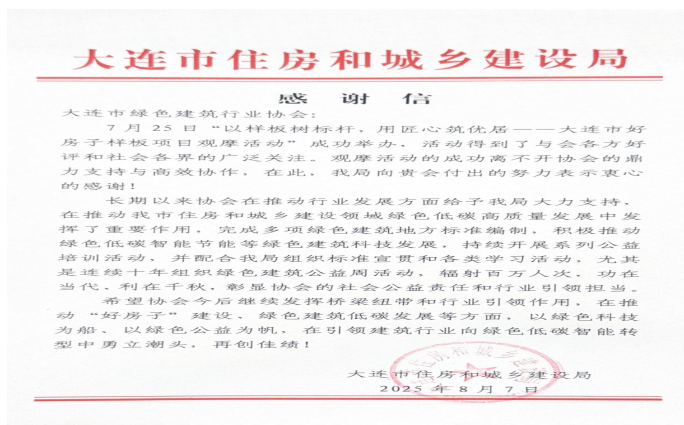 大连市住房和城乡建设局
感谢信
大连市绿色建筑行业协会：
7月25日“以样板树标杆，用匠心筑优居——大连市好
房子样板项目观摩活动”成功举办，活动得到了与会各方好
评和社会各界的广泛关注。观摩活动的成功离不开协会的鼎
力支持与高效协作，在此，我局向贵会付出的努力表示衷心
的感谢！
长期以来协会在推动行业发展方面给予我局大力支持，
在推动我市住房和城乡建设领域绿色低碳高质量发展中发
挥了重要作用，完成多项绿色建筑地方标准编制，积极推动
绿色低碳智能节能等绿色建筑科技发展，持续开展系列公益
培训活动，并配合我局组织标准宣贯和各类学习活动，尤其
是连续十年组织绿色建筑公益周活动，辐射百万人次，功在
当代、利在千秋，彰显协会的社会公益责任和行业引领担当。
希望协会今后继续发挥桥梁纽带和行业引领作用，在推
动“好房子”建设、绿色建筑低碳发展等方面，以绿色科技
为船、以绿色公益为帆，在引领建筑行业向绿色低碳智能转
型中勇立潮头，再创佳绩！
大连市住房和城乡建设局
2025年8月7日